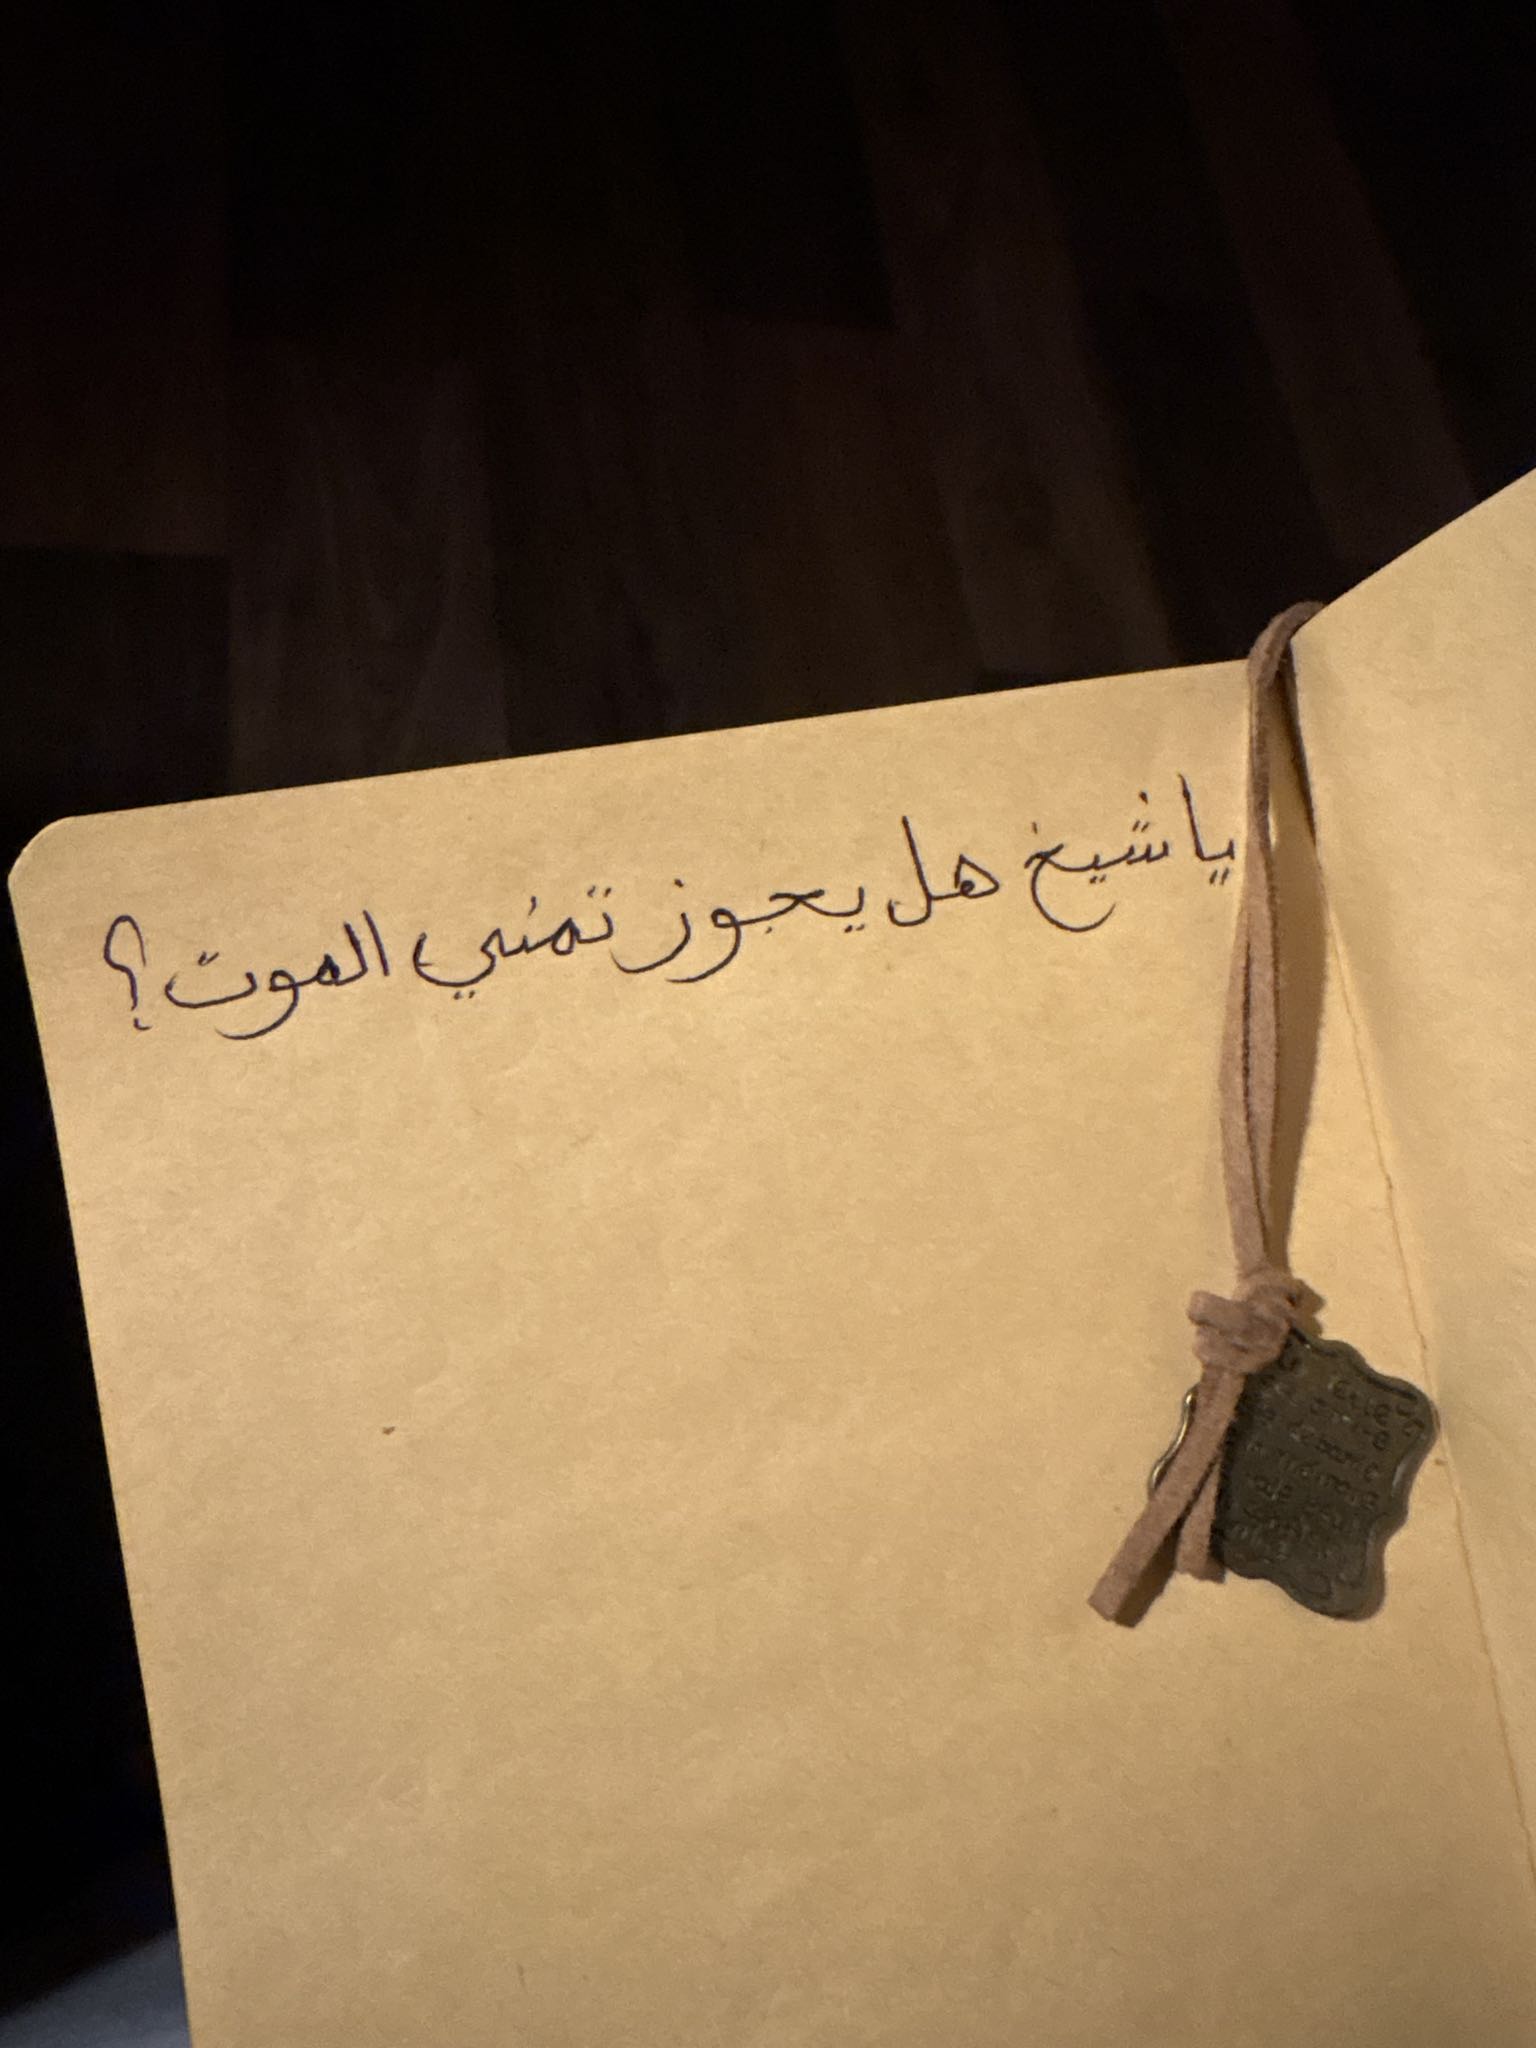 يا شيخ هل يجوز تمني الموت؟